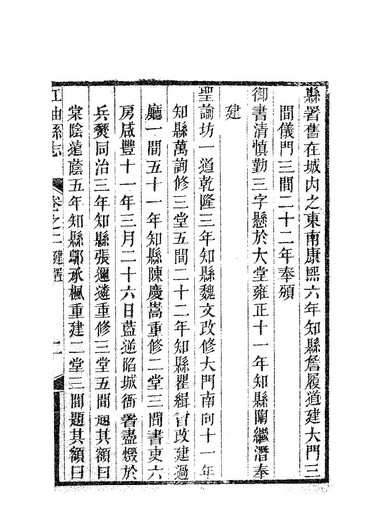 縣署舊在城內之東南康熙六年知縣詹履道建大門三
間儀門三間二十二年奉頒
御書清慎勤三字懸於大堂雍正十一年知縣閻繼潛奉
建
聖諭坊一道乾隆三年知縣魏文改修大門南向十一年
知縣萬詢修三堂五間二十二年知縣瞿緝曾改建過
廳一間五十一年知縣陳慶嵩重修二堂三間書吏六
房咸豐十一年三月二十六日藍逆陷城衙署盡燬於
兵燹同治三年知縣張邇遠重修三堂五間題其額曰
棠陰蓮蔭五年知縣鄢承楓重建二堂三間題其額曰
江油縣志 卷之二 建置 二